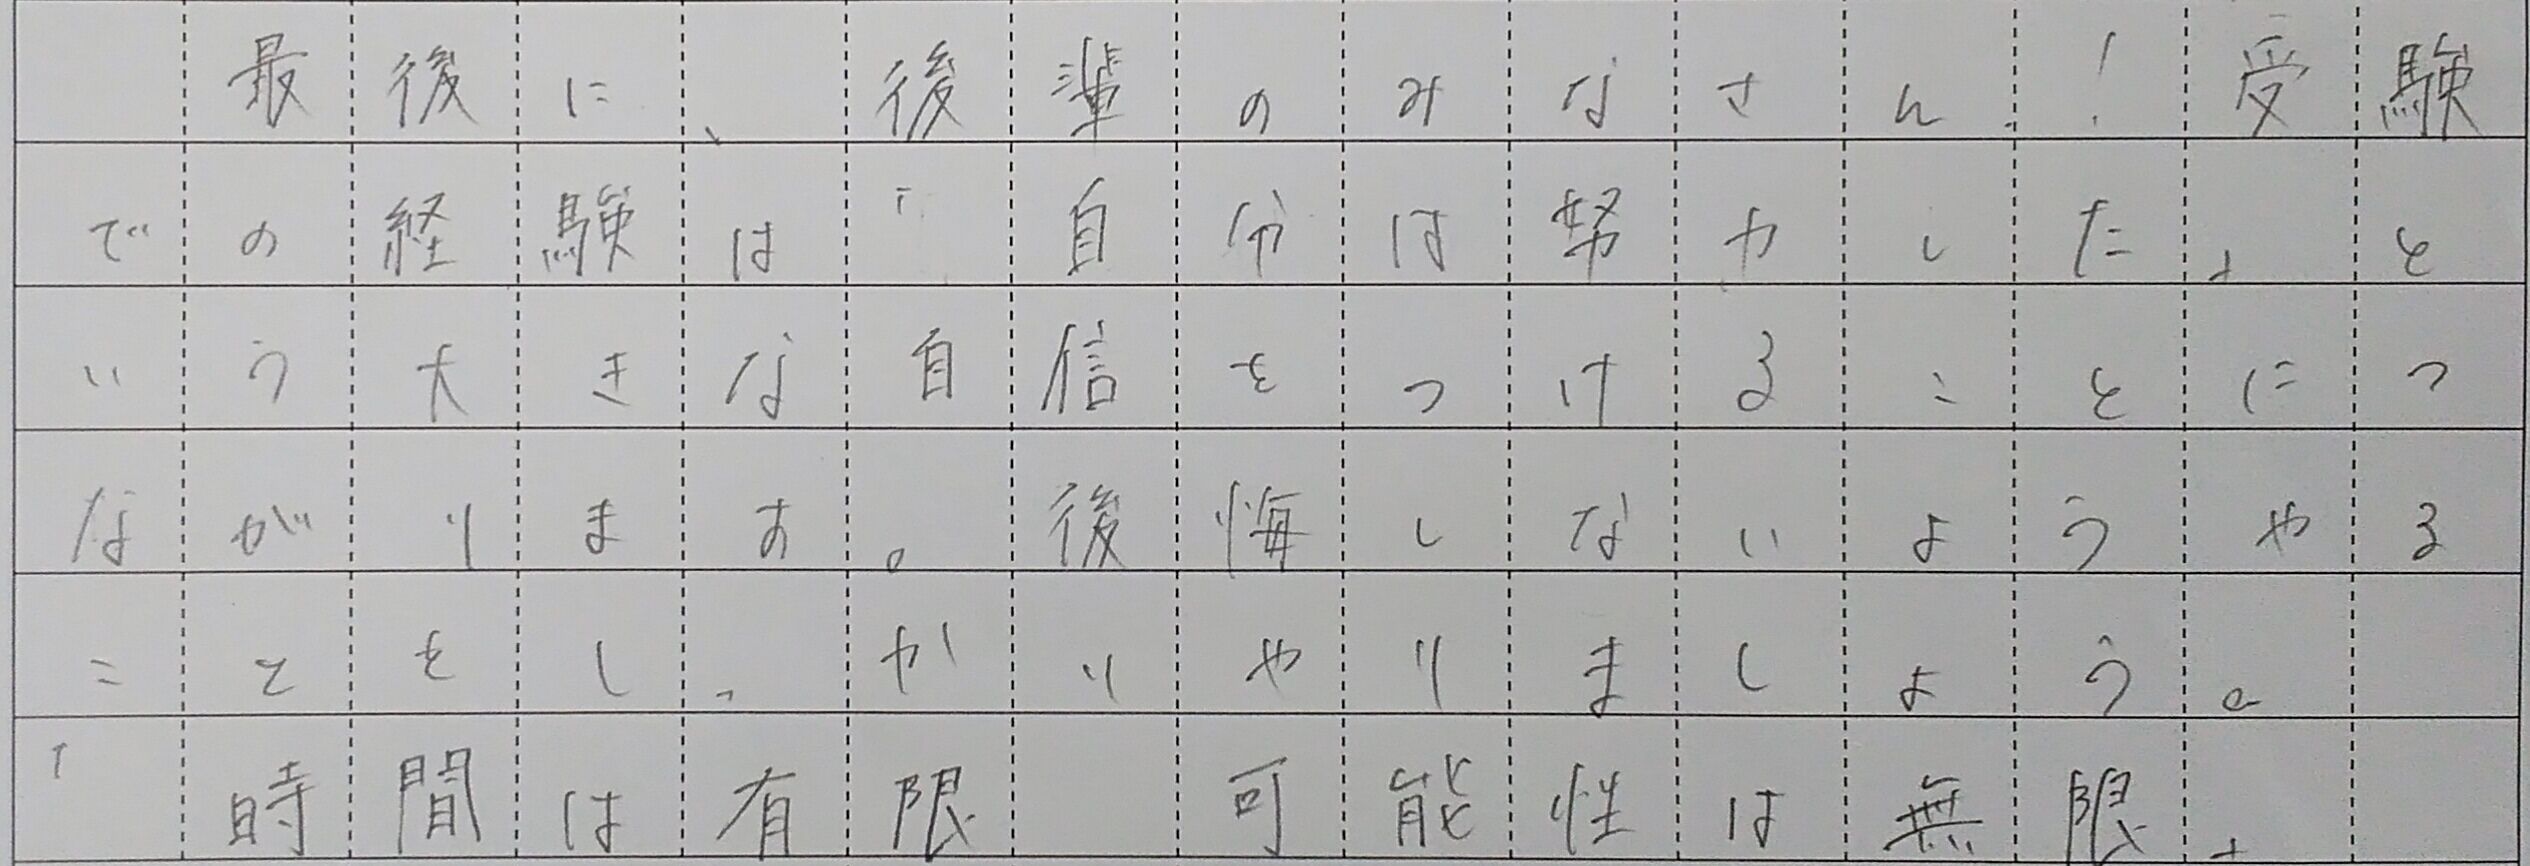 最後に、後輩のみなさん！受験
での経験は「自分は努力した」と
いう大きな自信をつけることにつ
ながります。後悔しないようやる
ことをしっかりやりましょう。
「時間は有限　可能性は無限」